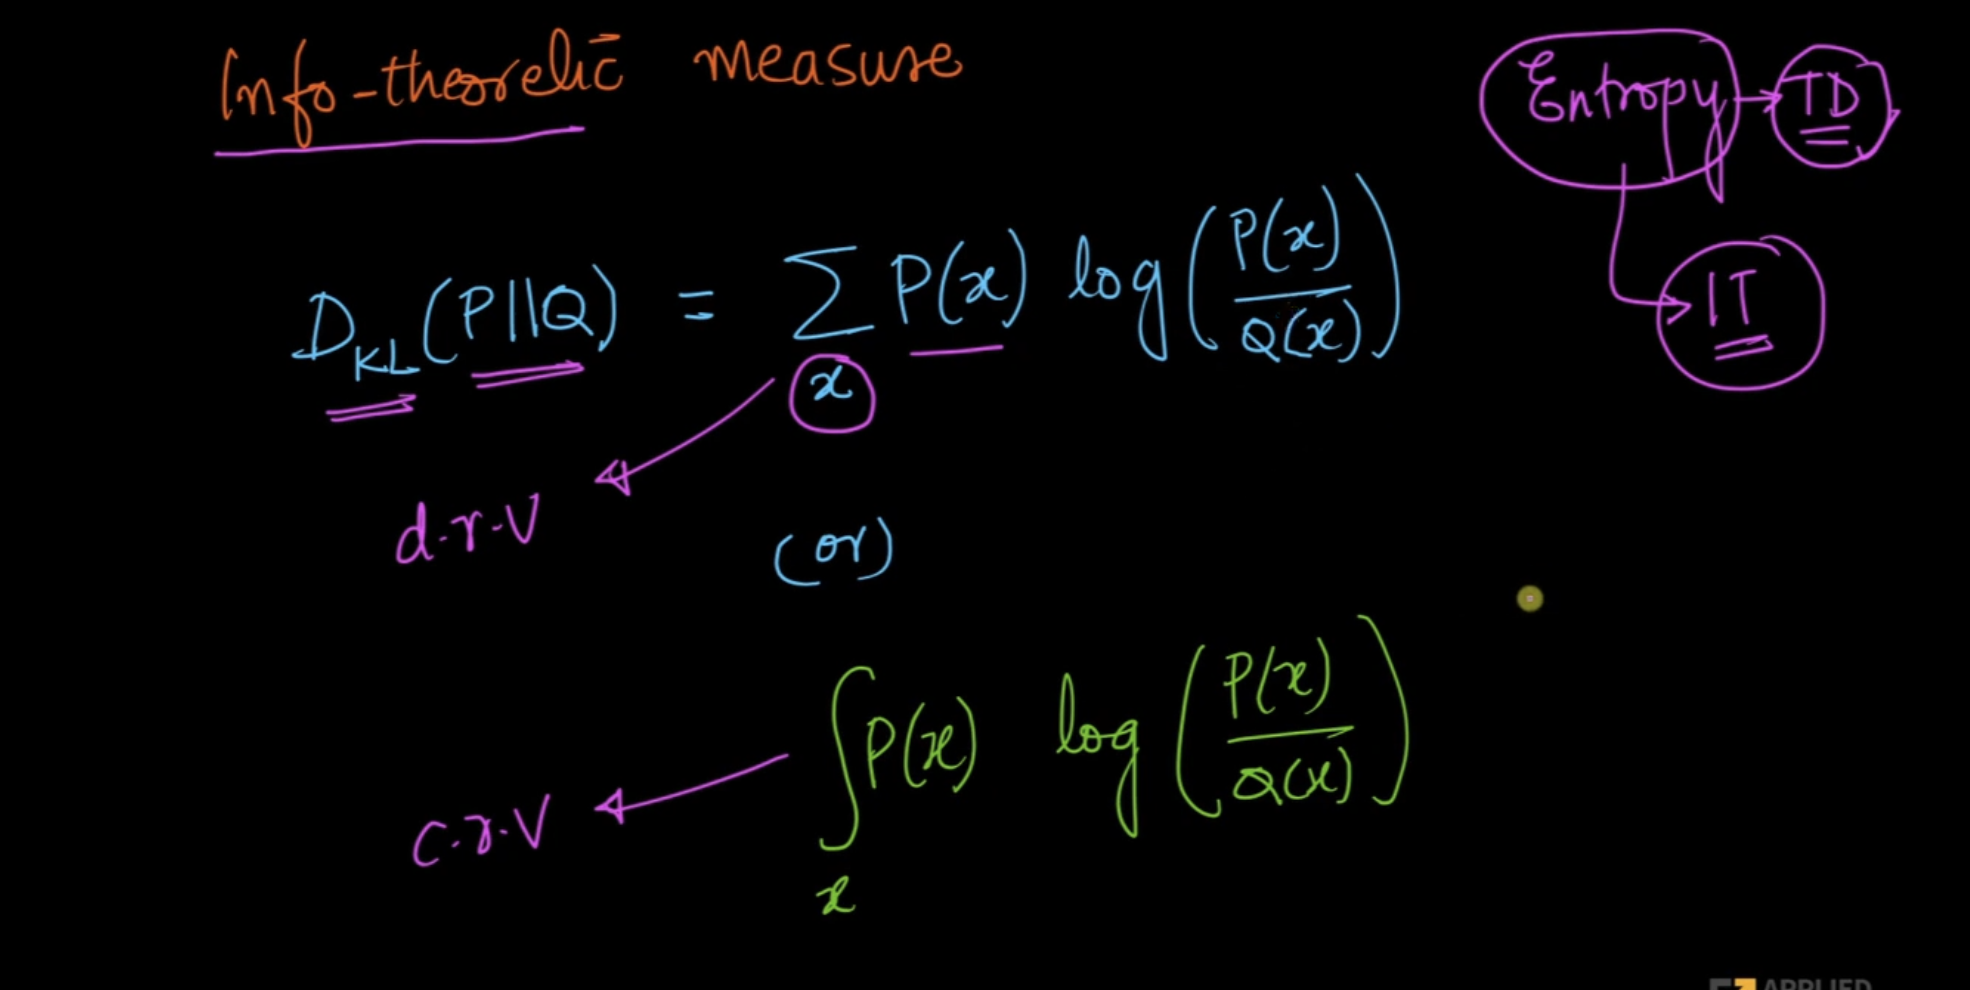 Info-theoretic measure
Entropy → TD
IT
D_KL(P||Q) = Σ_x P(x) log(P(x)/Q(x))
d.r.v
(or)
∫_x P(x) log(P(x)/Q(x))
c.r.v
APPLIED